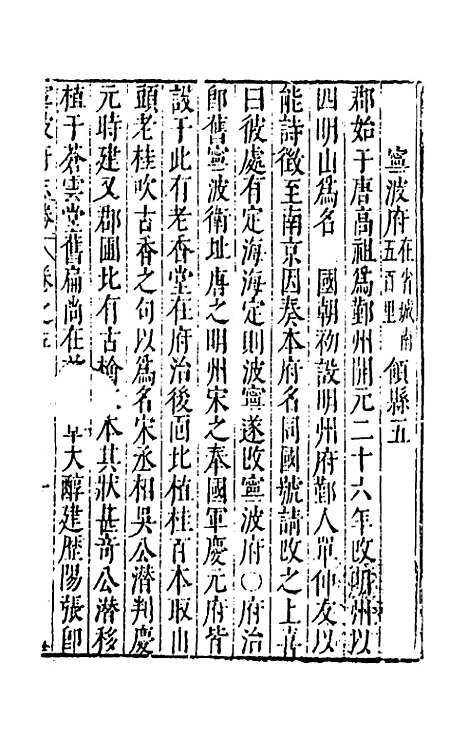 寧波府在省城南五百里領縣五
郡始于唐高祖爲鄞州開元二十六年改明州以
四明山爲名 國朝初設明州府鄞人單仲友以
能詩徵至南京因奏本府名同國號請改之上喜
曰彼處有定海海定則波寧遂改寧波府〇府治
卽舊寧波衛址唐之明州宋之奉國軍慶元府皆
設于此有老香堂在府治後圃北植桂百本取山
頭老桂吹古香之句以爲名宋丞相吳公潛判慶
元時建又郡圃北有古檜 本其狀甚奇公潛移
植于蒼雲堂舊扁尚在 早大醇建歷陽張卽